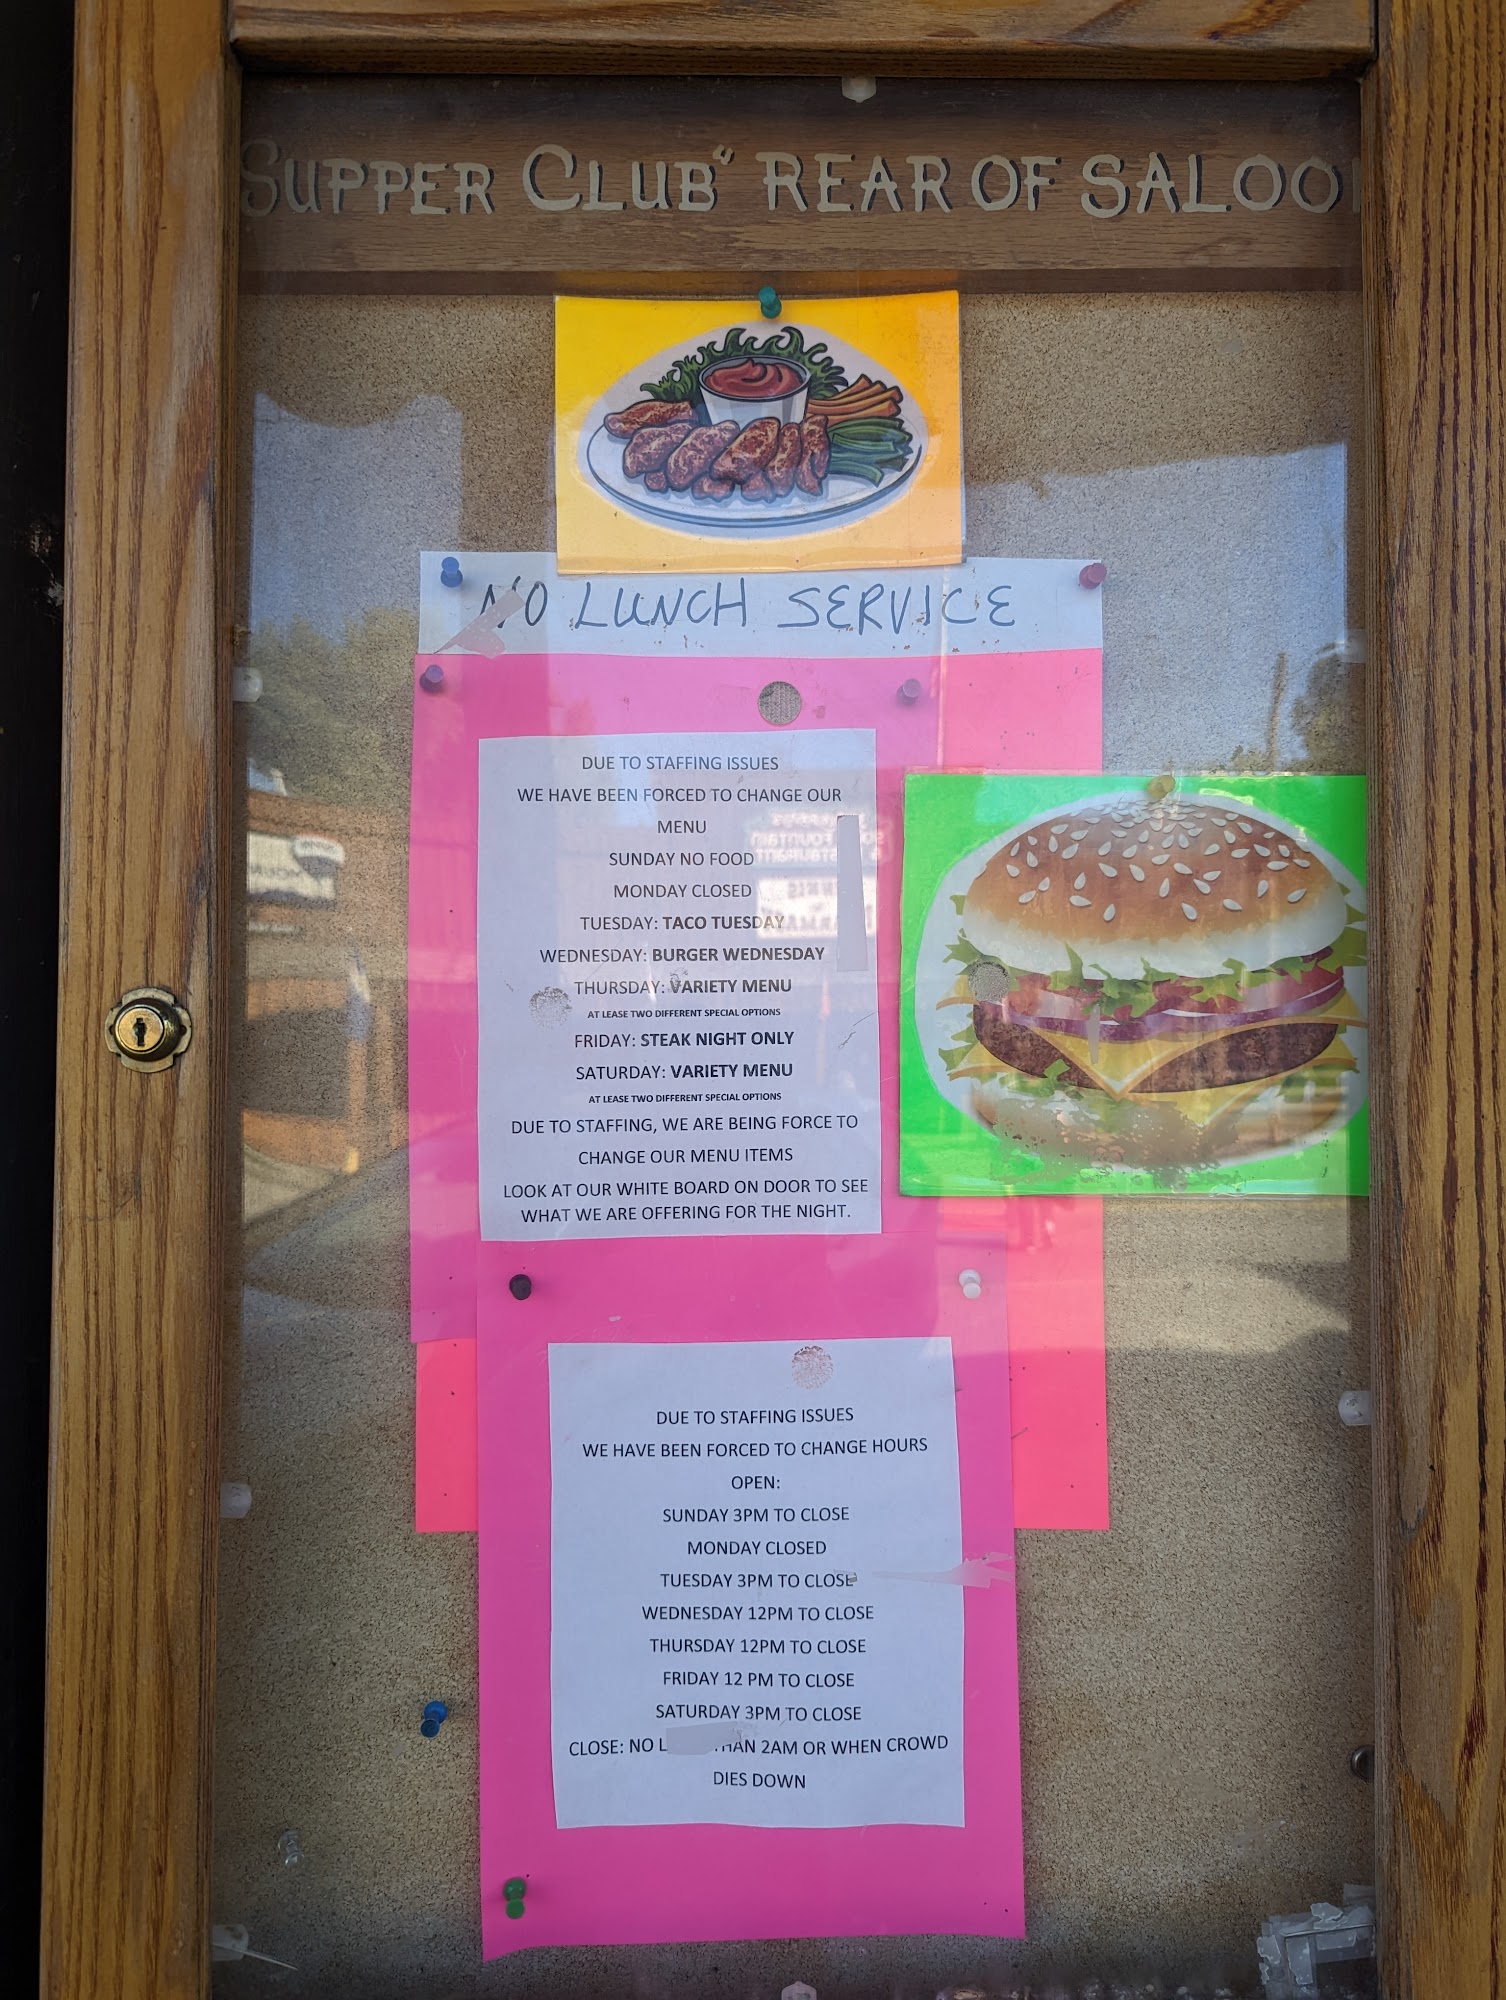 SUPPER CLUB" REAR OF SALOO
NO LUNCH SERVICE
DUE TO STAFFING ISSUES
WE HAVE BEEN FORCED TO CHANGE OUR
MENU
SUNDAY NO FOOD
MONDAY CLOSED
TUESDAY: TACO TUESDAY
WEDNESDAY: BURGER WEDNESDAY
THURSDAY: VARIETY MENU
AT LEASE TWO DIFFERENT SPECIAL OPTIONS
FRIDAY: STEAK NIGHT ONLY
SATURDAY: VARIETY MENU
AT LEASE TWO DIFFERENT SPECIAL OPTIONS
DUE TO STAFFING, WE ARE BEING FORCE TO
CHANGE OUR MENU ITEMS
LOOK AT OUR WHITE BOARD ON DOOR TO SEE
WHAT WE ARE OFFERING FOR THE NIGHT.
DUE TO STAFFING ISSUES
WE HAVE BEEN FORCED TO CHANGE HOURS
OPEN:
SUNDAY 3PM TO CLOSE
MONDAY CLOSED
TUESDAY 3PM TO CLOSE
WEDNESDAY 12PM TO CLOSE
THURSDAY 12PM TO CLOSE
FRIDAY 12 PM TO CLOSE
SATURDAY 3PM TO CLOSE
CLOSE: NO 2AM OR WHEN CROWD
DIES DOWN